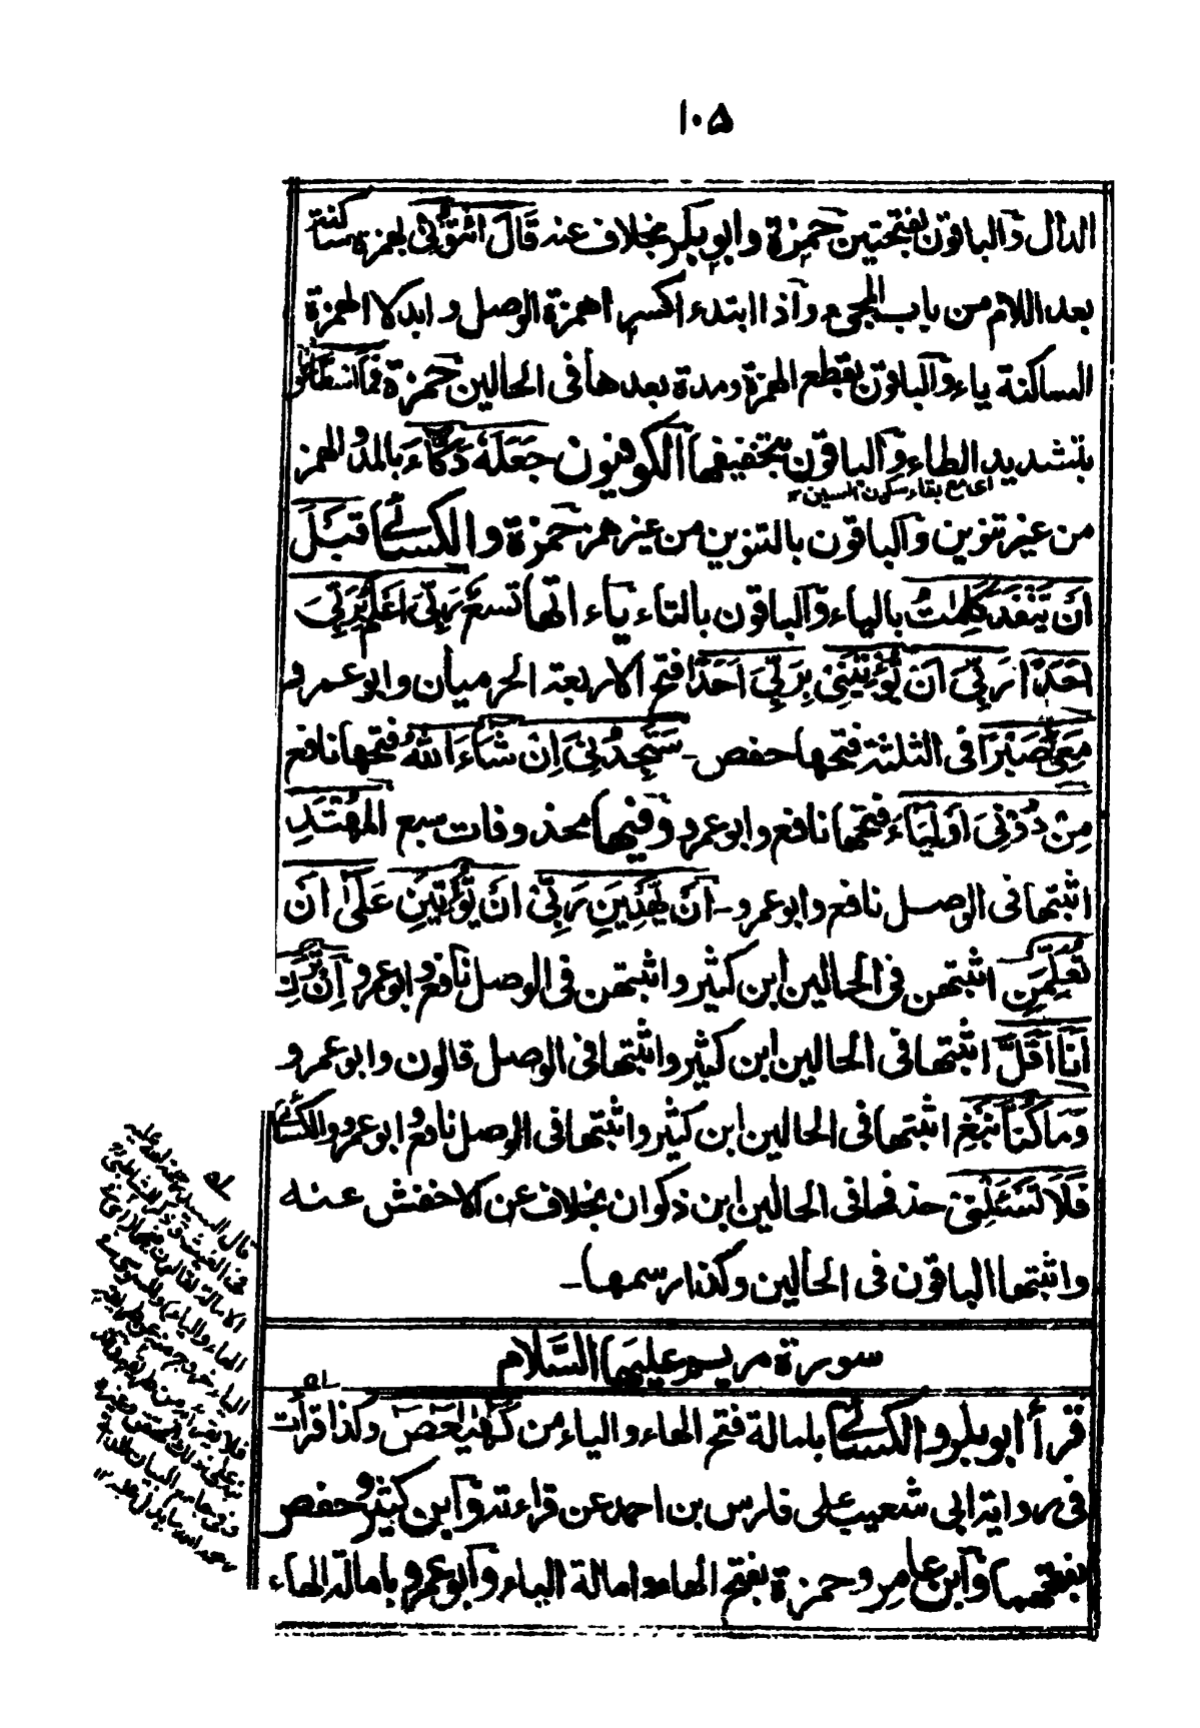 ۱۰۵
الدال والباقون بفتحتين حمزة وابو بكر بخلاف عنه قَالَ ائْتُوْنِيْ بهمزة ساكنة
بعد اللام من باب المجيء واذا ابتدءا كسرا همزة الوصل وابدلا الهمزة
الساكنة ياء والباقون بقطع الهمزة ومدة بعدها في الحالين حمزة فَمَا اسْطَاعُوْا
بتشديد الطاء والباقون بتخفيفها الكوفيون جَعَلَهٗ دَكَّاءَ بالمد والهمز
اى مع بقاء سكون السين ١٢
من غير تنوين والباقون بالتنوين من غير همز حمزة والكسائي قَبْلَ
اَنْ يَّنْفَدَ كَلِمٰتُ بالياء والباقون بالتاء ياءاتها تسع رَبِّيَ اَعْلَمُ بِرَبِّيَ
اَحَدًا رَبِّيَ اَنْ يُّؤْتِيَنِيْ بِرَبِّيَ اَحَدًا فتح الاربعة الحرميان وابو عمرو
مَعِيَ صَبْرًا في الثلثة فتحها حفص ـ سَتَجِدُنِيَ اِنْ شَاءَ اللّٰهُ فتحها نافع
مِنْ دُوْنِيَ اَوْلِيَاءَ فتحها نافع وابو عمرو وفيها محذوفات سبع الْمُهْتَدِ
اثبتها في الوصل نافع وابو عمرو ـ اَنْ يَّهْدِيَنِ رَبِّيْ اَنْ يُّؤْتِيَنِ عَلٰى اَنْ
تُعَلِّمَنِ اثبتهن في الحالين ابن كثير واثبتهن في الوصل نافع وابو عمرو اِنْ تَرَنِ
اَنَا اَقَلَّ اثبتها في الحالين ابن كثير واثبتها في الوصل قالون وابو عمرو و
وَمَا كُنَّا نَبْغِ اثبتها في الحالين ابن كثير واثبتها في الوصل نافع وابو عمرو والكسائي
فَلَا تَسْئَلْنِيْ حذفها في الحالين ابن ذكوان بخلاف عن الاخفش عنه
واثبتها الباقون في الحالين وكذا رسمها ـ
سورة مريم عليها السَّلام
قرأ ابو بكر والكسائي بامالة فتح الهاء والياء من كٓهٰيٰعٓصٓ وكذا قرأت
في رواية ابي شعيب على فارس بن احمد عن قراءته وابن كثير وحفص
بفتحهما وابن عامر وحمزة بفتح الهاء وامالة الياء وابو عمرو بامالة الهاء